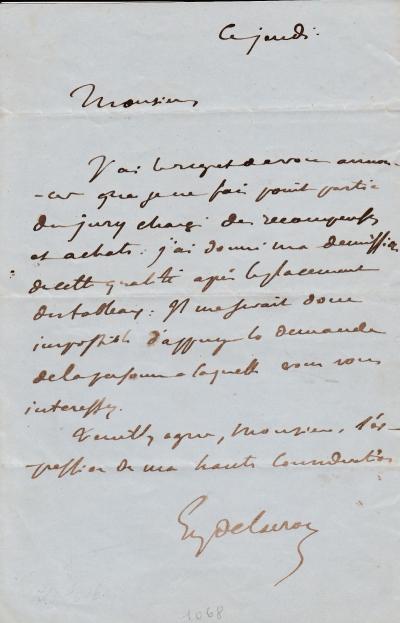 Ce jeudi.
Monsieur
J'ai le regret de vous annon-
-cer que je ne fais point partie
du jury chargé des recompenses
et achats: j'ai donné ma demission
de cette qualité après le placement
des tableaux: Il me serait donc
impossible d'appuyer la demande
de la personne a laquelle vous vous
interessez.
Veuillez agréer, Monsieur, l'ex-
pression de ma haute consideration
Eug Delacroix
1068